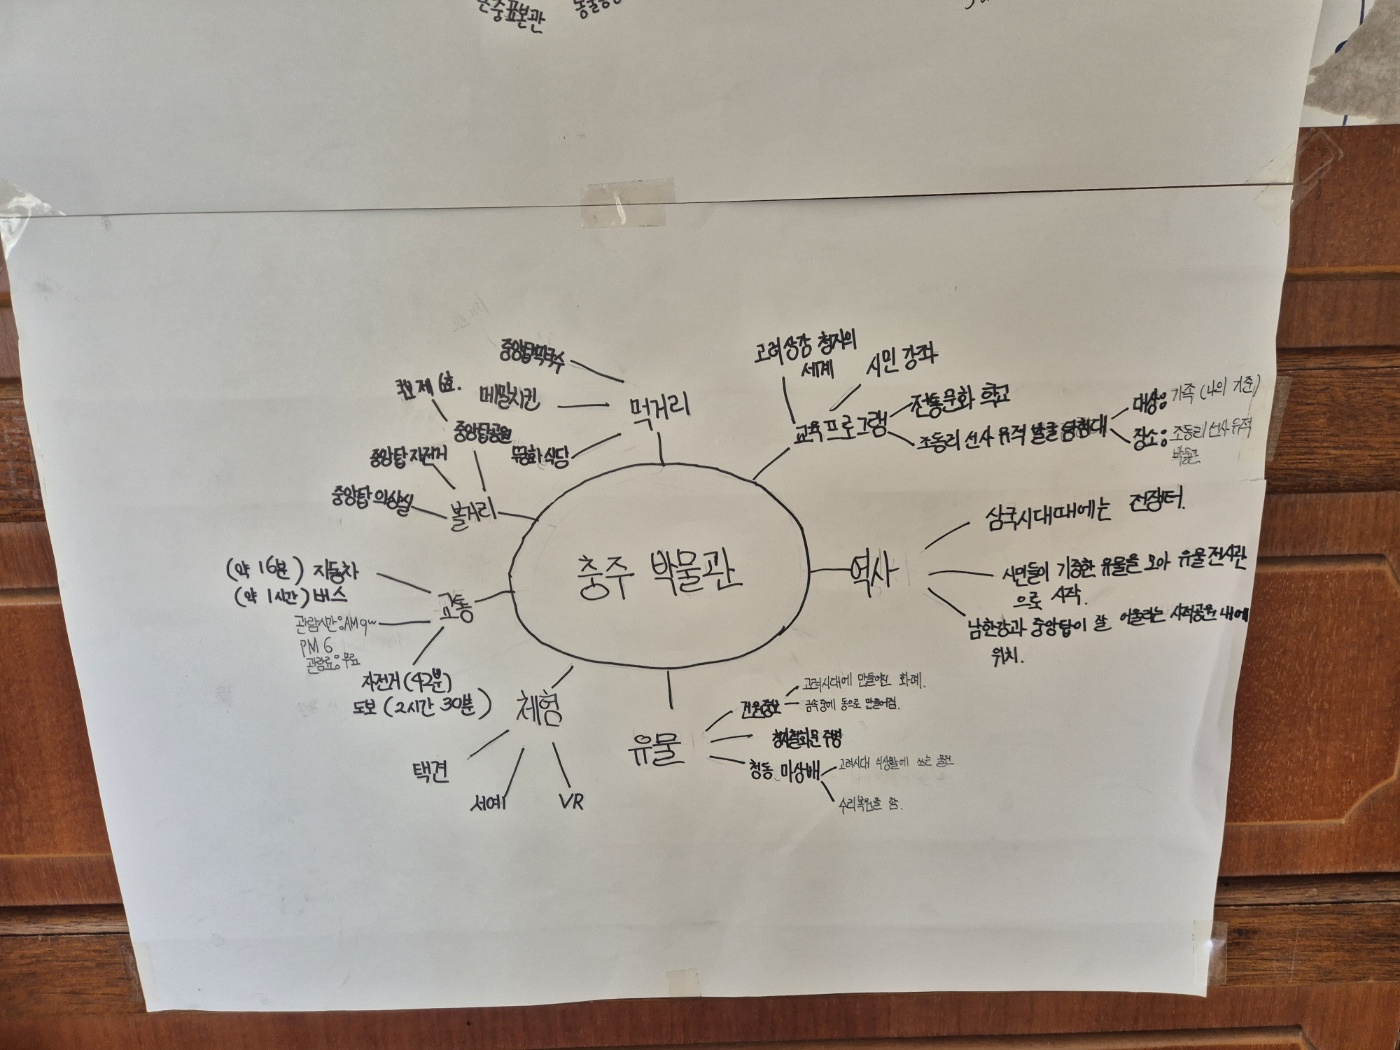 곤충표본관
중앙탑막국수
메밀치킨
먹거리
고려 상감 청자의
세계
시민 강좌
전통문화 학교
교육프로그램
조동리 선사 유적 발굴 탐험대
대상: 가족 (나의 기준)
장소: 조동리 선사 유적
박물관
중앙탑공원
중앙탑 자전거
중앙탑 의상실
볼거리
충주 박물관
역사
삼국시대때에는 전쟁터.
시민들이 기증한 유물을 모아 유물전시관
으로 시작.
남한강과 중앙탑이 잘 어울리는 사적공원 내에
위치.
(약 16분) 자동차
(약 1시간) 버스
교통
관람시간:AM 9~
PM 6
관람료:무료
자전거 (42분)
도보 (2시간 30분)
체험
택견
서예
VR
유물
고려시대에 만들어진 화폐.
금속중에 동으로 만들어짐.
청자철화문 주병
청동
고려시대
수리복원을 함.